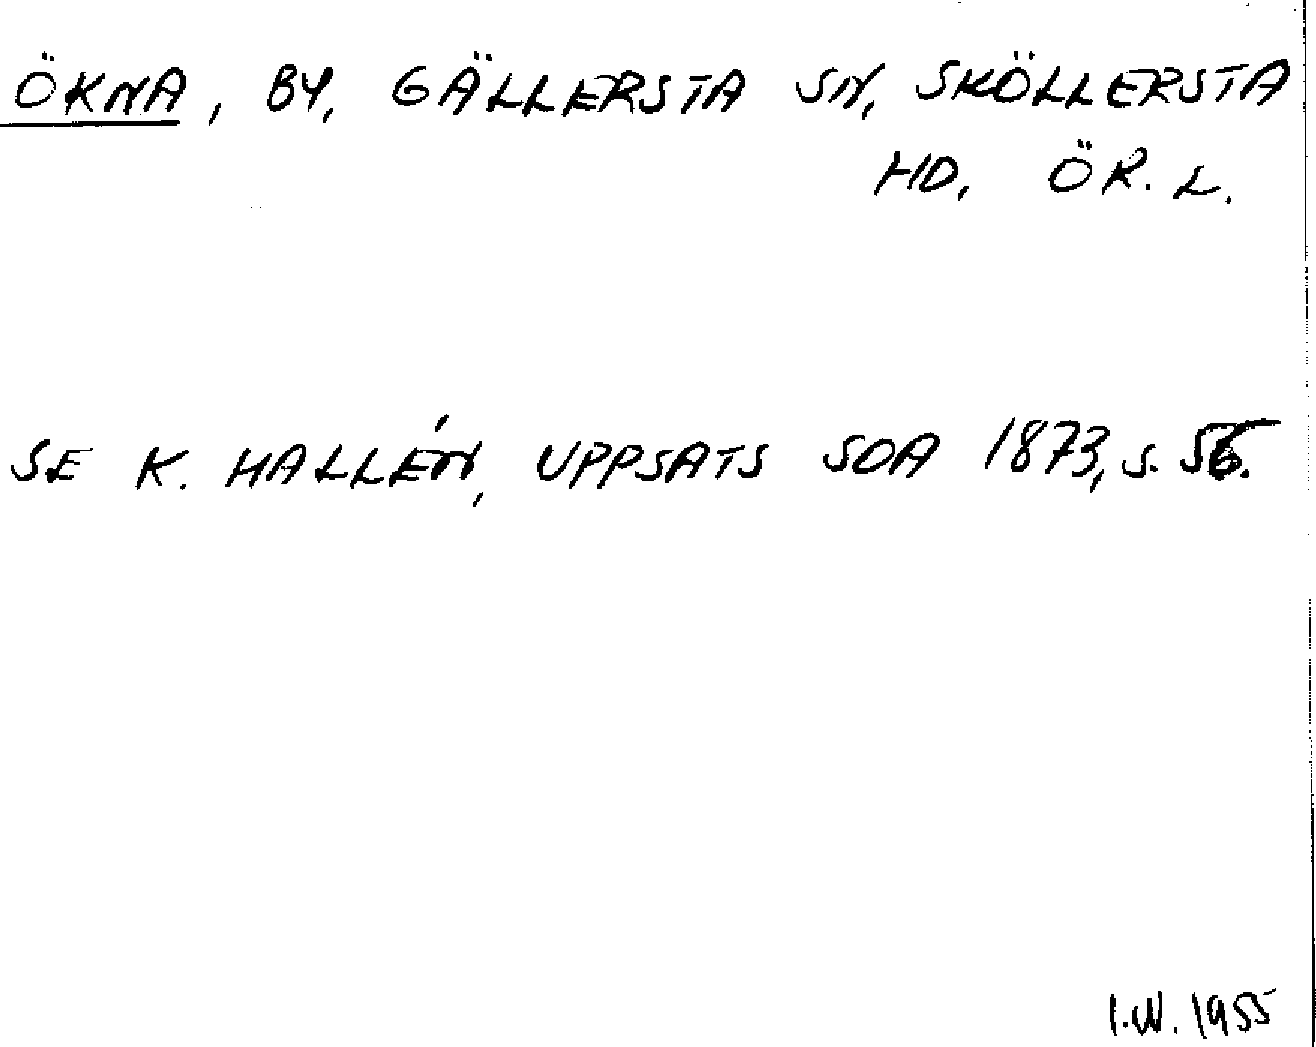 ÖKNA, BY, GÄLLERSTA SN, SKÖLLERSTA
HD, ÖR. L.
SE K. HALLÉN, UPPSATS SOA 1873, S. 56.
I.W. 1955